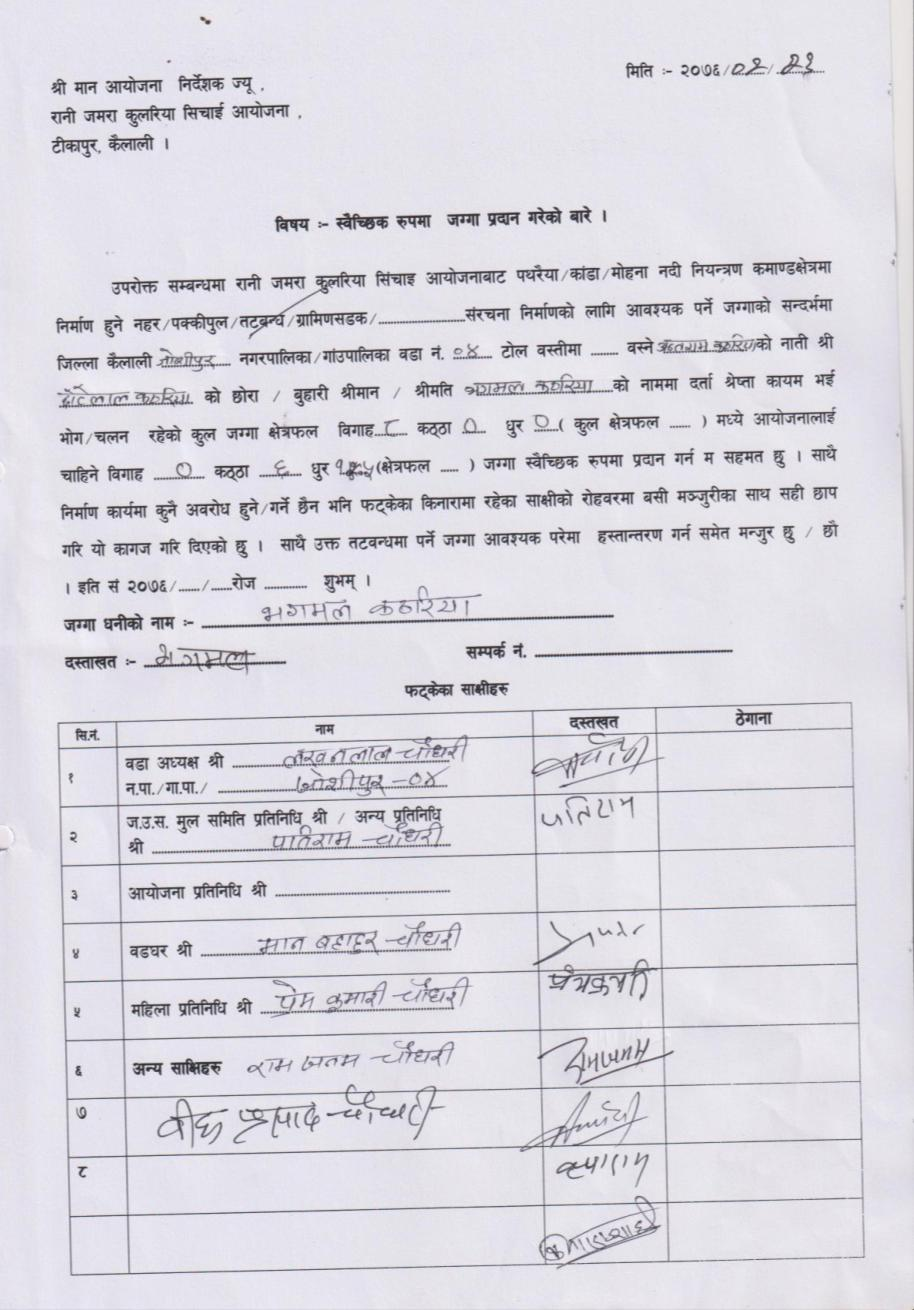 मिति :- २०७६/०२/२३
श्री मान आयोजना निर्देशक ज्यू ,
रानी जमरा कुलरिया सिचाई आयोजना ,
टीकापुर, कैलाली ।
विषय :- स्वैच्छिक रुपमा जग्गा प्रदान गरेको बारे ।
उपरोक्त सम्बन्धमा रानी जमरा कुलरिया सिंचाइ आयोजनाबाट पथरैया/कांडा/मोहना नदी नियन्त्रण कमाण्डक्षेत्रमा
निर्माण हुने नहर/पक्कीपुल/तटबन्ध/ग्रामिणसडक/....................संरचना निर्माणको लागि आवश्यक पर्ने जग्गाको सन्दर्भमा
जिल्ला कैलाली जोशीपुर नगरपालिका/गांउपालिका वडा नं. ०४ टोल वस्तीमा ........ वस्ने कठरियाको नाती श्री
छोटेलाल कठरिया को छोरा / बुहारी श्रीमान / श्रीमति भगमल कठरिया को नाममा दर्ता श्रेष्ता कायम भई
भोग/चलन रहेको कुल जग्गा क्षेत्रफल विगाह ८ कठ्ठा ० धुर ० ( कुल क्षेत्रफल ...... ) मध्ये आयोजनालाई
चाहिने विगाह ० कठ्ठा ६ धुर (क्षेत्रफल ..... ) जग्गा स्वैच्छिक रुपमा प्रदान गर्न म सहमत छु । साथै
निर्माण कार्यमा कुनै अवरोध हुने/गर्ने छैन भनि फट्केका किनारामा रहेका साक्षीको रोहवरमा बसी मञ्जुरीका साथ सही छाप
गरि यो कागज गरि दिएको छु । साथै उक्त तटवन्धमा पर्ने जग्गा आवश्यक परेमा हस्तान्तरण गर्न समेत मन्जुर छु / छौ
। इति सं २०७६/....../......रोज ............ शुभम् ।
जग्गा धनीको नाम :- भगमल कठरिया
दस्ताखत :- भगमल सम्पर्क नं. ............................
फट्केका साक्षीहरु
सि.नं. नाम दस्तखत ठेगाना
१ वडा अध्यक्ष श्री लखनलाल चौधरी
न.पा./गा.पा./ जोशीपुर-०४
२ ज.उ.स. मुल समिति प्रतिनिधि श्री / अन्य प्रतिनिधि
श्री पातिराम चौधरी पतिराम
३ आयोजना प्रतिनिधि श्री ............................
४ वडघर श्री मान बहादुर चौधरी
५ महिला प्रतिनिधि श्री प्रेम कुमारी चौधरी प्रेमकुमारी
६ अन्य साक्षिहरु राम जनम चौधरी रामजनम
७ प्रसाद चौधरी
८